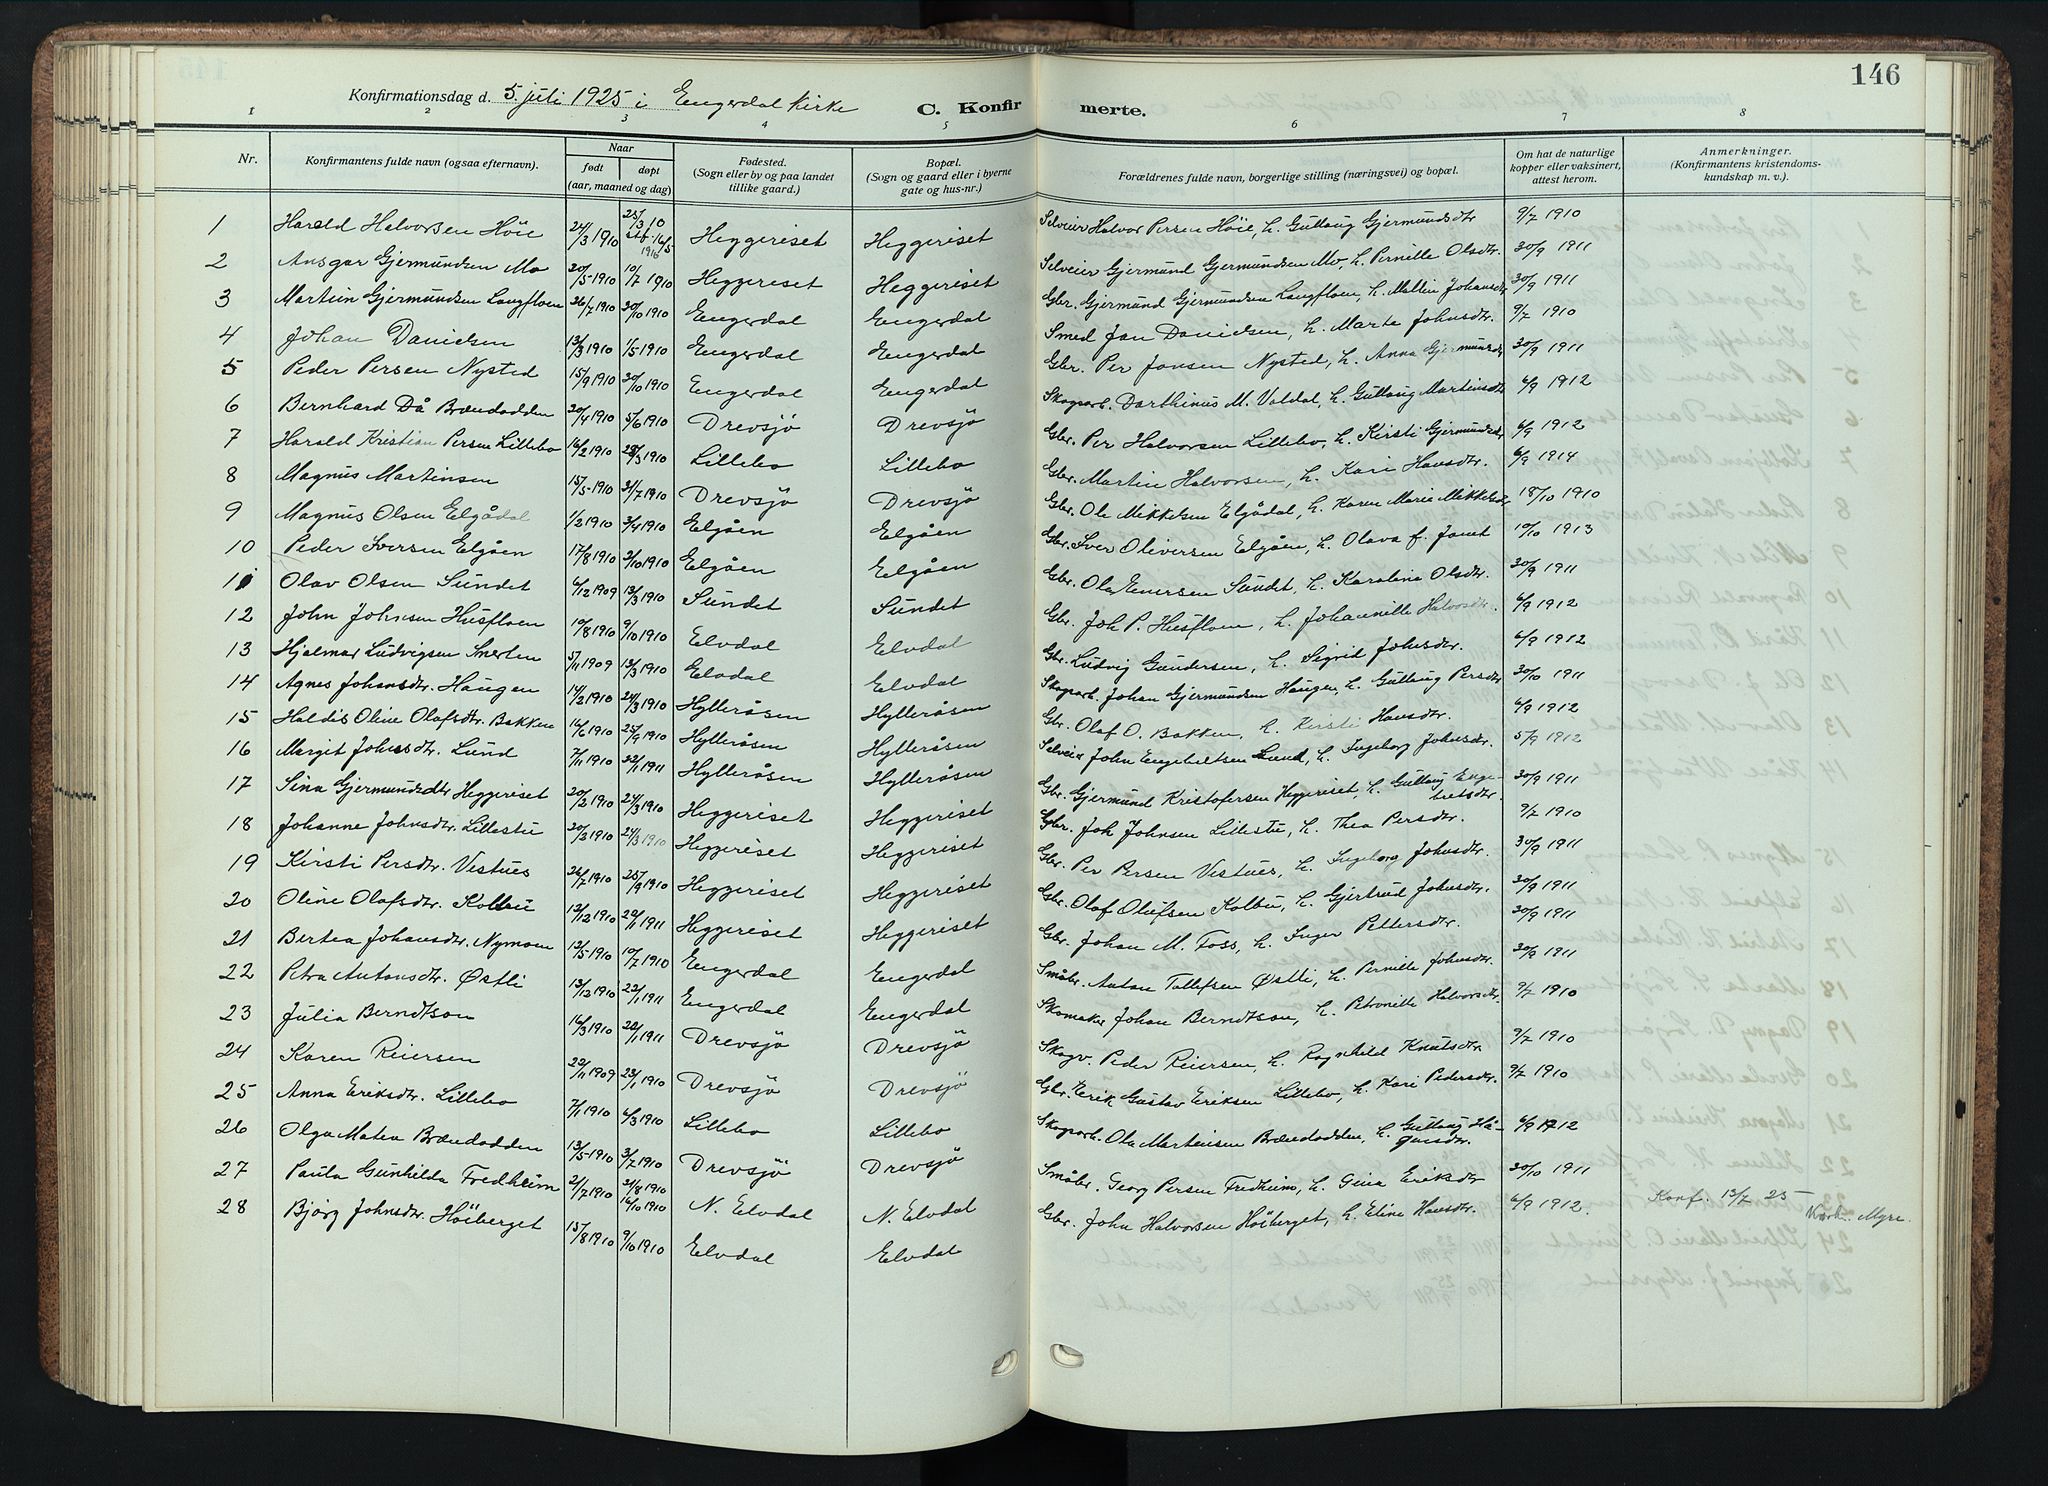 146
Konfirmationsdag d. 5 juli 1925 i Engerdal kirke
C. Konfirmerte.
1 2 3 4 5 6 7 8
Nr. | Konfirmantens fulde navn (ogsaa efternavn). | Naar født døpt (aar, maaned og dag) | Fødested. (Sogn eller by og paa landet tillike gaard.) | Bopæl. (Sogn og gaard eller i byerne gate og hus-nr.) | Forældrenes fulde navn, borgerlige stilling (næringsvei) og bopæl. | Om hat de naturlige kopper eller vaksinert, attest herom. | Anmerkninger. (Konfirmantens kristendomskundskap m. v.).
1 Harald Halvorsen Höie 24/3 1910 25/3 10 stf. 16/5 1916 Heggeriset Heggeriset Selveier Halvor Persen Höie, h. Gullaug Gjermundsdtr 9/7 1910
2 Ansgar Gjermundsen Mo 20/5 1910 10/7 1910 Heggeriset Heggeriset Selveier Gjermund Gjermundsen Mo, h. Pernille Olsdtr. 30/9 1911
3 Martin Gjermundsen Langfloen 26/7 1910 30/10 1910 Engerdal Engerdal Gbr. Gjermund Gjermundsen Langfloen, h. Mallin Johansdtr 30/9 1911
4 Johan Danielsen 13/3 1910 1/5 1910 Engerdal Engerdal Smed Jan Danielsen, h. Marte Johnsdtr. 9/7 1910
5 Peder Persen Nysted 15/9 1910 30/10 1910 Engerdal Engerdal Gbr. Per Jonsen Nysted, h. Anna Gjermundsdtr 30/9 1911
6 Bernhard Då Brændodden 20/4 1910 5/6 1910 Drevsjö Drevsjö Skogarb. Darthinus M. Valdal, h. Gullaug Martinsdtr 6/9 1912
7 Harald Kristian Persen Lillebo 16/2 1910 28/3 1910 Lillebo Lillebo Gbr. Per Halvorsen Lillebo, h. Kirsti Gjermundsdtr 6/9 1912
8 Magnus Martinsen 15/5 1910 31/7 1910 Drevsjö Drevsjö Gbr. Martin Halvorsen, h. Kari Hansdtr. 6/9 1914
9 Magnus Olsen Elgådal 1/2 1910 3/4 1910 Elgåen Elgåen Gbr. Ole Mikkelsen Elgådal, h. Karen Marie Mikkelsdtr 18/10 1910
10 Peder Iversen Elgåen 17/8 1910 2/10 1910 Elgåen Elgåen Gbr. Iver Oliversen Elgåen, h. Olava f. Jamt 10/10 1913
11 Olav Olsen Sundet 6/12 1909 13/3 1910 Sundet Sundet Gbr. Ola Enersen Sundet, h. Karolina Olsdtr. 30/9 1911
12 John Johnsen Husfloen 10/8 1910 9/10 1910 Elvdal Elvdal Gbr. Joh P. Husfloen, h. Johannille Halvorsdtr. 6/9 1912
13 Hjalmar Ludvigsen Snerten 5/11 1909 13/3 1910 Elvdal Elvdal Gbr. Ludvig Gundersen, h. Sigrid Johnsdtr. 6/9 1912
14 Agnes Johansdtr. Haugen 14/2 1910 24/3 1910 Hylleråsen Hylleråsen Skogarb. Johan Gjermundsen Haugen, h. Gullaug Persdtr 30/10 1911
15 Haldis Oline Olafsdtr. Bakken 16/6 1910 25/9 1910 Hylleråsen Hylleråsen Gbr. Olaf O. Bakken, h. Kirsti Hansdtr. 6/9 1912
16 Margit Johnsdtr. Lund 7/11 1910 22/1 1911 Hylleråsen Hylleråsen Selveier John Engebretsen Lund, h. Ingeborg Johnsdtr. 5/9 1912
17 Sina Gjermundsdtr Heggeriset 20/2 1910 24/3 1910 Heggeriset Heggeriset Gbr. Gjermund Kristofersen Heggeriset, h. Gullaug Engebretsdtr. 30/9 1911
18 Johanne Johnsdtr. Lillestu 20/3 1910 24/3 1910 Heggeriset Heggeriset Gbr. Joh Johnsen Lillestu, h. Thea Persdtr. 9/7 1910
19 Kirsti Persdtr. Vestues 26/7 1910 25/9 1910 Heggeriset Heggeriset Gbr. Per Persen Vestues, h. Ingeborg Johnsdtr. 30/9 1911
20 Oline Olafsdtr. Kolbu 12/12 1910 22/1 1911 Heggeriset Heggeriset Gbr. Olaf Olufsen Kolbu, h. Gjertrud Johnsdtr. 30/9 1911
21 Bertea Johansdtr. Nymoen 13/5 1910 10/7 1910 Engerdal Engerdal Gbr. Johan M. Foss, h. Inger Pettersdtr. 30/9 1911
22 Petra Antonsdtr. Østli 13/12 1910 22/1 1911 Engerdal Engerdal Småbr. Anton Tollefsen Østli, h. Pernille Johnsdtr. 30/9 1911
23 Julia Berndtson 16/3 1910 22/1 1911 Drevsjö Drevsjö Skomaker Johan Berndtson, h. Petronille Halvorsdtr. 9/7 1910
24 Karen Reiersen 22/11 1909 23/1 1910 Drevsjö Drevsjö Skogv. Peder Reiersen, h. Ragnhild Knutsdtr 9/7 1910
25 Anna Eriksdtr. Lillebo 7/1 1910 6/3 1910 Lillebo Lillebo Gbr. Erik Gustav Eriksen Lillebo, h. Kari Pedersdtr. 9/7 1910
26 Olga Matea Brændodden 13/5 1910 3/7 1910 Drevsjö Drevsjö Skogarb. Ola Martinsen Brændodden, h. Gullaug Hågensdtr. 6/9 1912
27 Paula Gunhilda Fredheim 21/7 1910 21/8 1910 16/10 1910 N. Elvdal N. Elvdal Småbr. Georg Persen Fredheim, h. Gina Eriksdtr 30/10 1911
28 Bjørg Johnsdtr. Höiberget 15/8 1910 9/10 1910 Elvdal Elvdal Gbr. John Halvorsen Höiberget, h. Eline Hansdtr. 6/9 1912. Konf. 13/7 25 Myre.